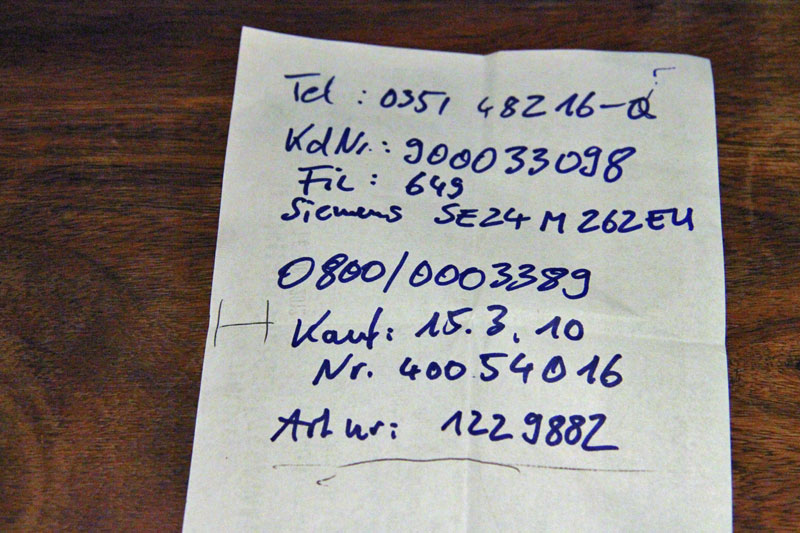 Tel : 0351 48216-0
KdNr.: 900033098
Fil : 649
Siemens SE24M262EU
0800/0003389
Kauf: 15.3.10
Nr. 40054016
Art nr: 1229882